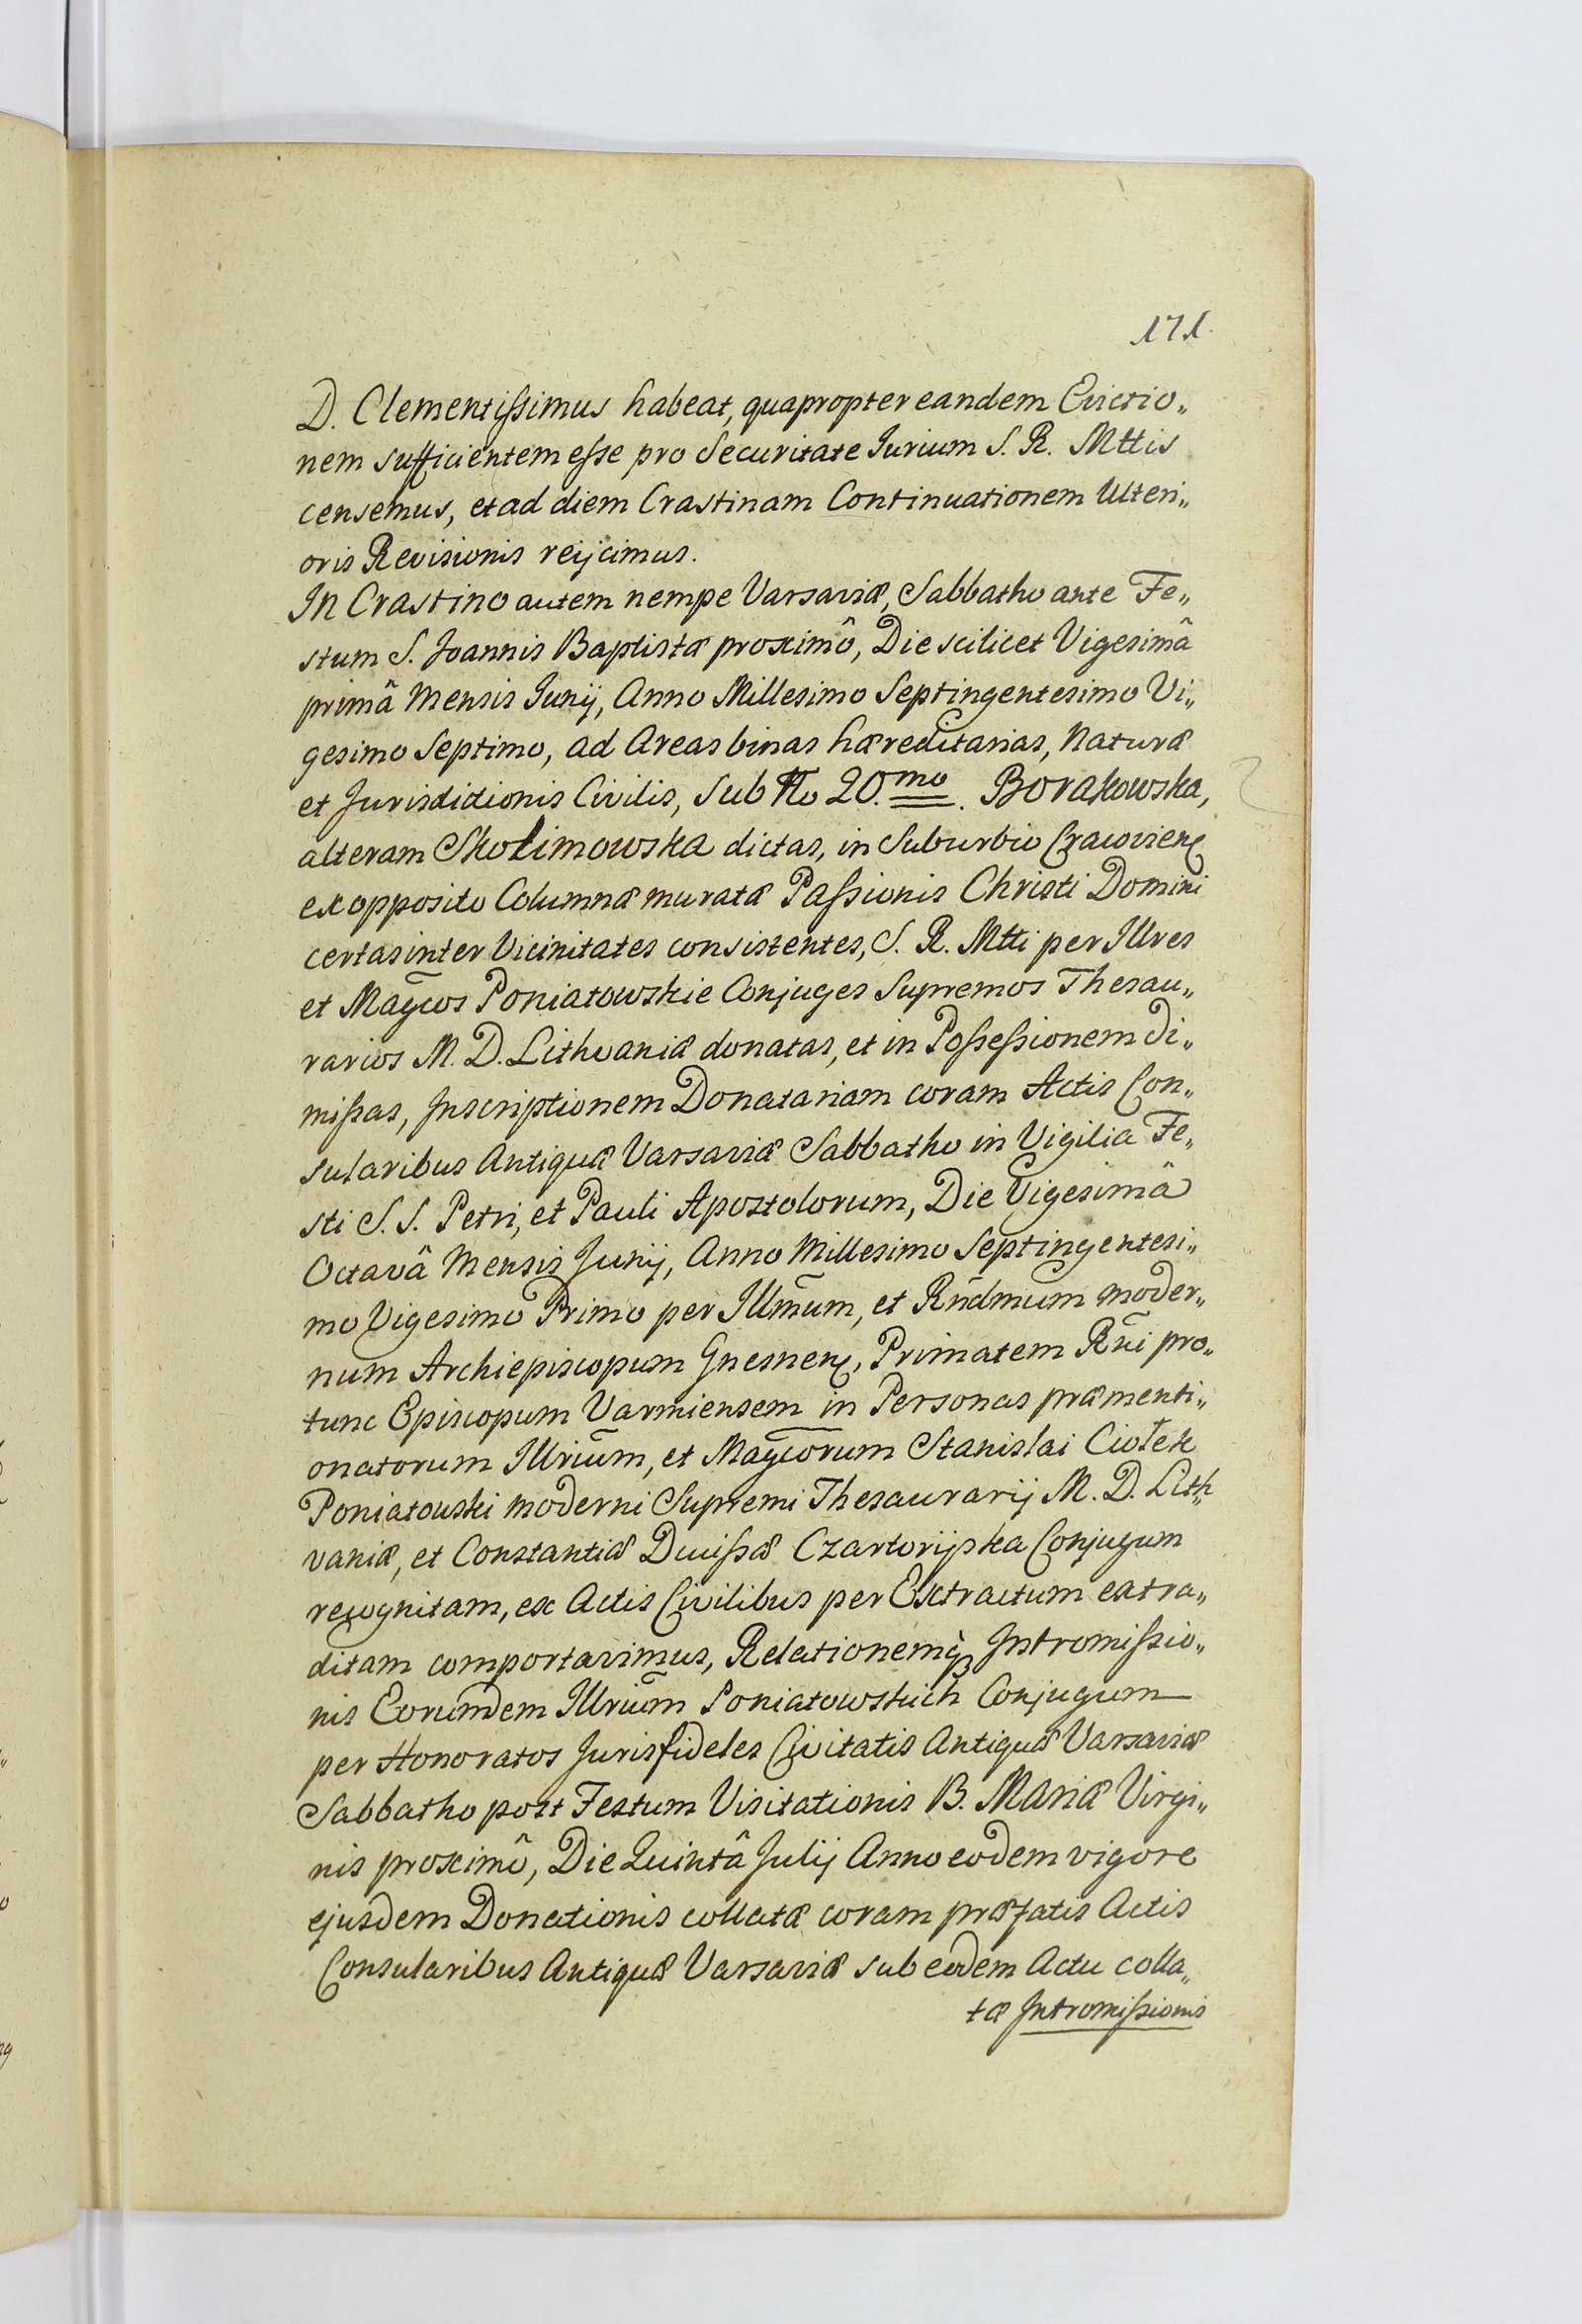 171.
D. Clementißimus habeat, quapropter eandem Evictio„
nem sufficientem eße pro Securitate Iurium S. R. Mttis
censemus, et ad diem Crastinam Continuationem Ulteri„
oris Revisionis reijcimus.
In Crastino autem nempe Varsaviæ, Sabbatho ante Fe„
stum S. Joannis Baptistæ proximô, Die scilicet Vigesimâ
primâ Mensis Iunij, Anno Millesimo Septingentesimo Vi„
gesimo Septimo, ad Areas binas hæreditarias, Naturæ
et Jurisdictionis Civilis, sub No 20.mo. Borakowska,
alteram Skolimowska dictas, in Suburbio Cracovien
ex opposito Columnæ muratæ Paßionis Christi Domini
certas inter Vicinitates consistentes, S. R. Mtti per Illres
et Magcos Poniatowskie Conjuges Supremos Thesau„
rarios M. D. Lithvaniæ donatas, et in Poßeßionem di„
mißas, Inscriptionem Donatariam coram Actis Con„
sularibus Antiquæ Varsaviæ Sabbatho in Vigilia Fe„
sti S. S. Petri, et Pauli Apostolorum, Die Vigesimâ
Octavâ Mensis Junij, Anno Millesimo Septingentesi„
mo Vigesimo Primo per Illmum, et Rndmum moder„
num Archiepiscopum Gnesnen, Primatem Rni pro„
tunc Episcopum Varmiensem in Personas præmenti„
onatorum Illrium, et Magcorum Stanislai Ciołek
Poniatowski moderni Supremi Thesaurarij M. D. Lith„
vaniæ, et Constantiæ Ducißæ Czartoryska Conjugum
recognitam, ex Actis Civilibus per Extractum extra„
ditam comportavimus, Relationemq̀ Intromißio„
nis Eorundem Illrium Poniatowskich Conjugum
per Honoratos Jurisfideles Civitatis Antiquæ Varsaviæ
Sabbatho post Festum Visitationis B. Mariæ Virgi„
nis proximô, Die Quintâ Julij Anno eodem vigore
ejusdem Donationis collatæ coram præfatis Actis
Consularibus Antiquæ Varsaviæ sub eodem Actu colla„
tæ Intromißionis